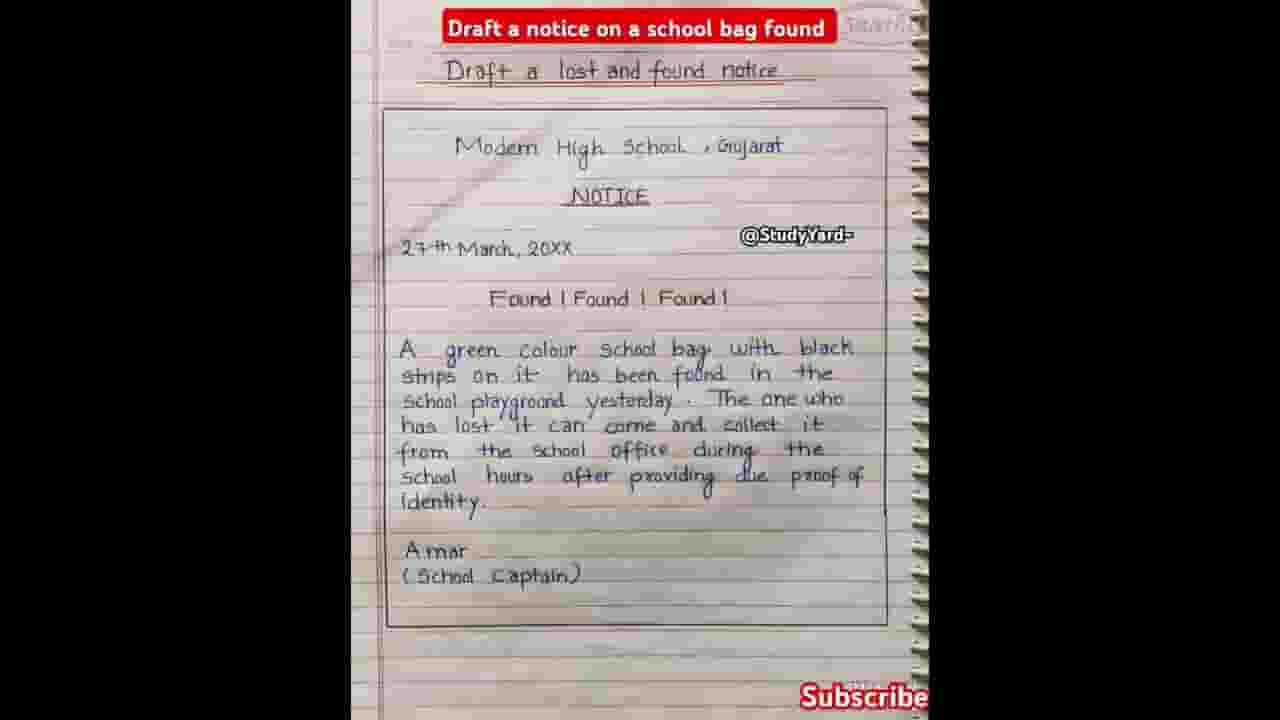 Draft a notice on a school bag found
Draft a lost and found notice
Modern High School, Gujarat
NOTICE
@StudyYard-
27th March, 20XX
Found ! Found ! Found !
A green colour school bag with black
strips on it has been found in the
school playground yesterday. The one who
has lost it can come and collect it
from the school office during the
school hours after providing due proof of
identity.
Amar
(School Captain)
Subscribe